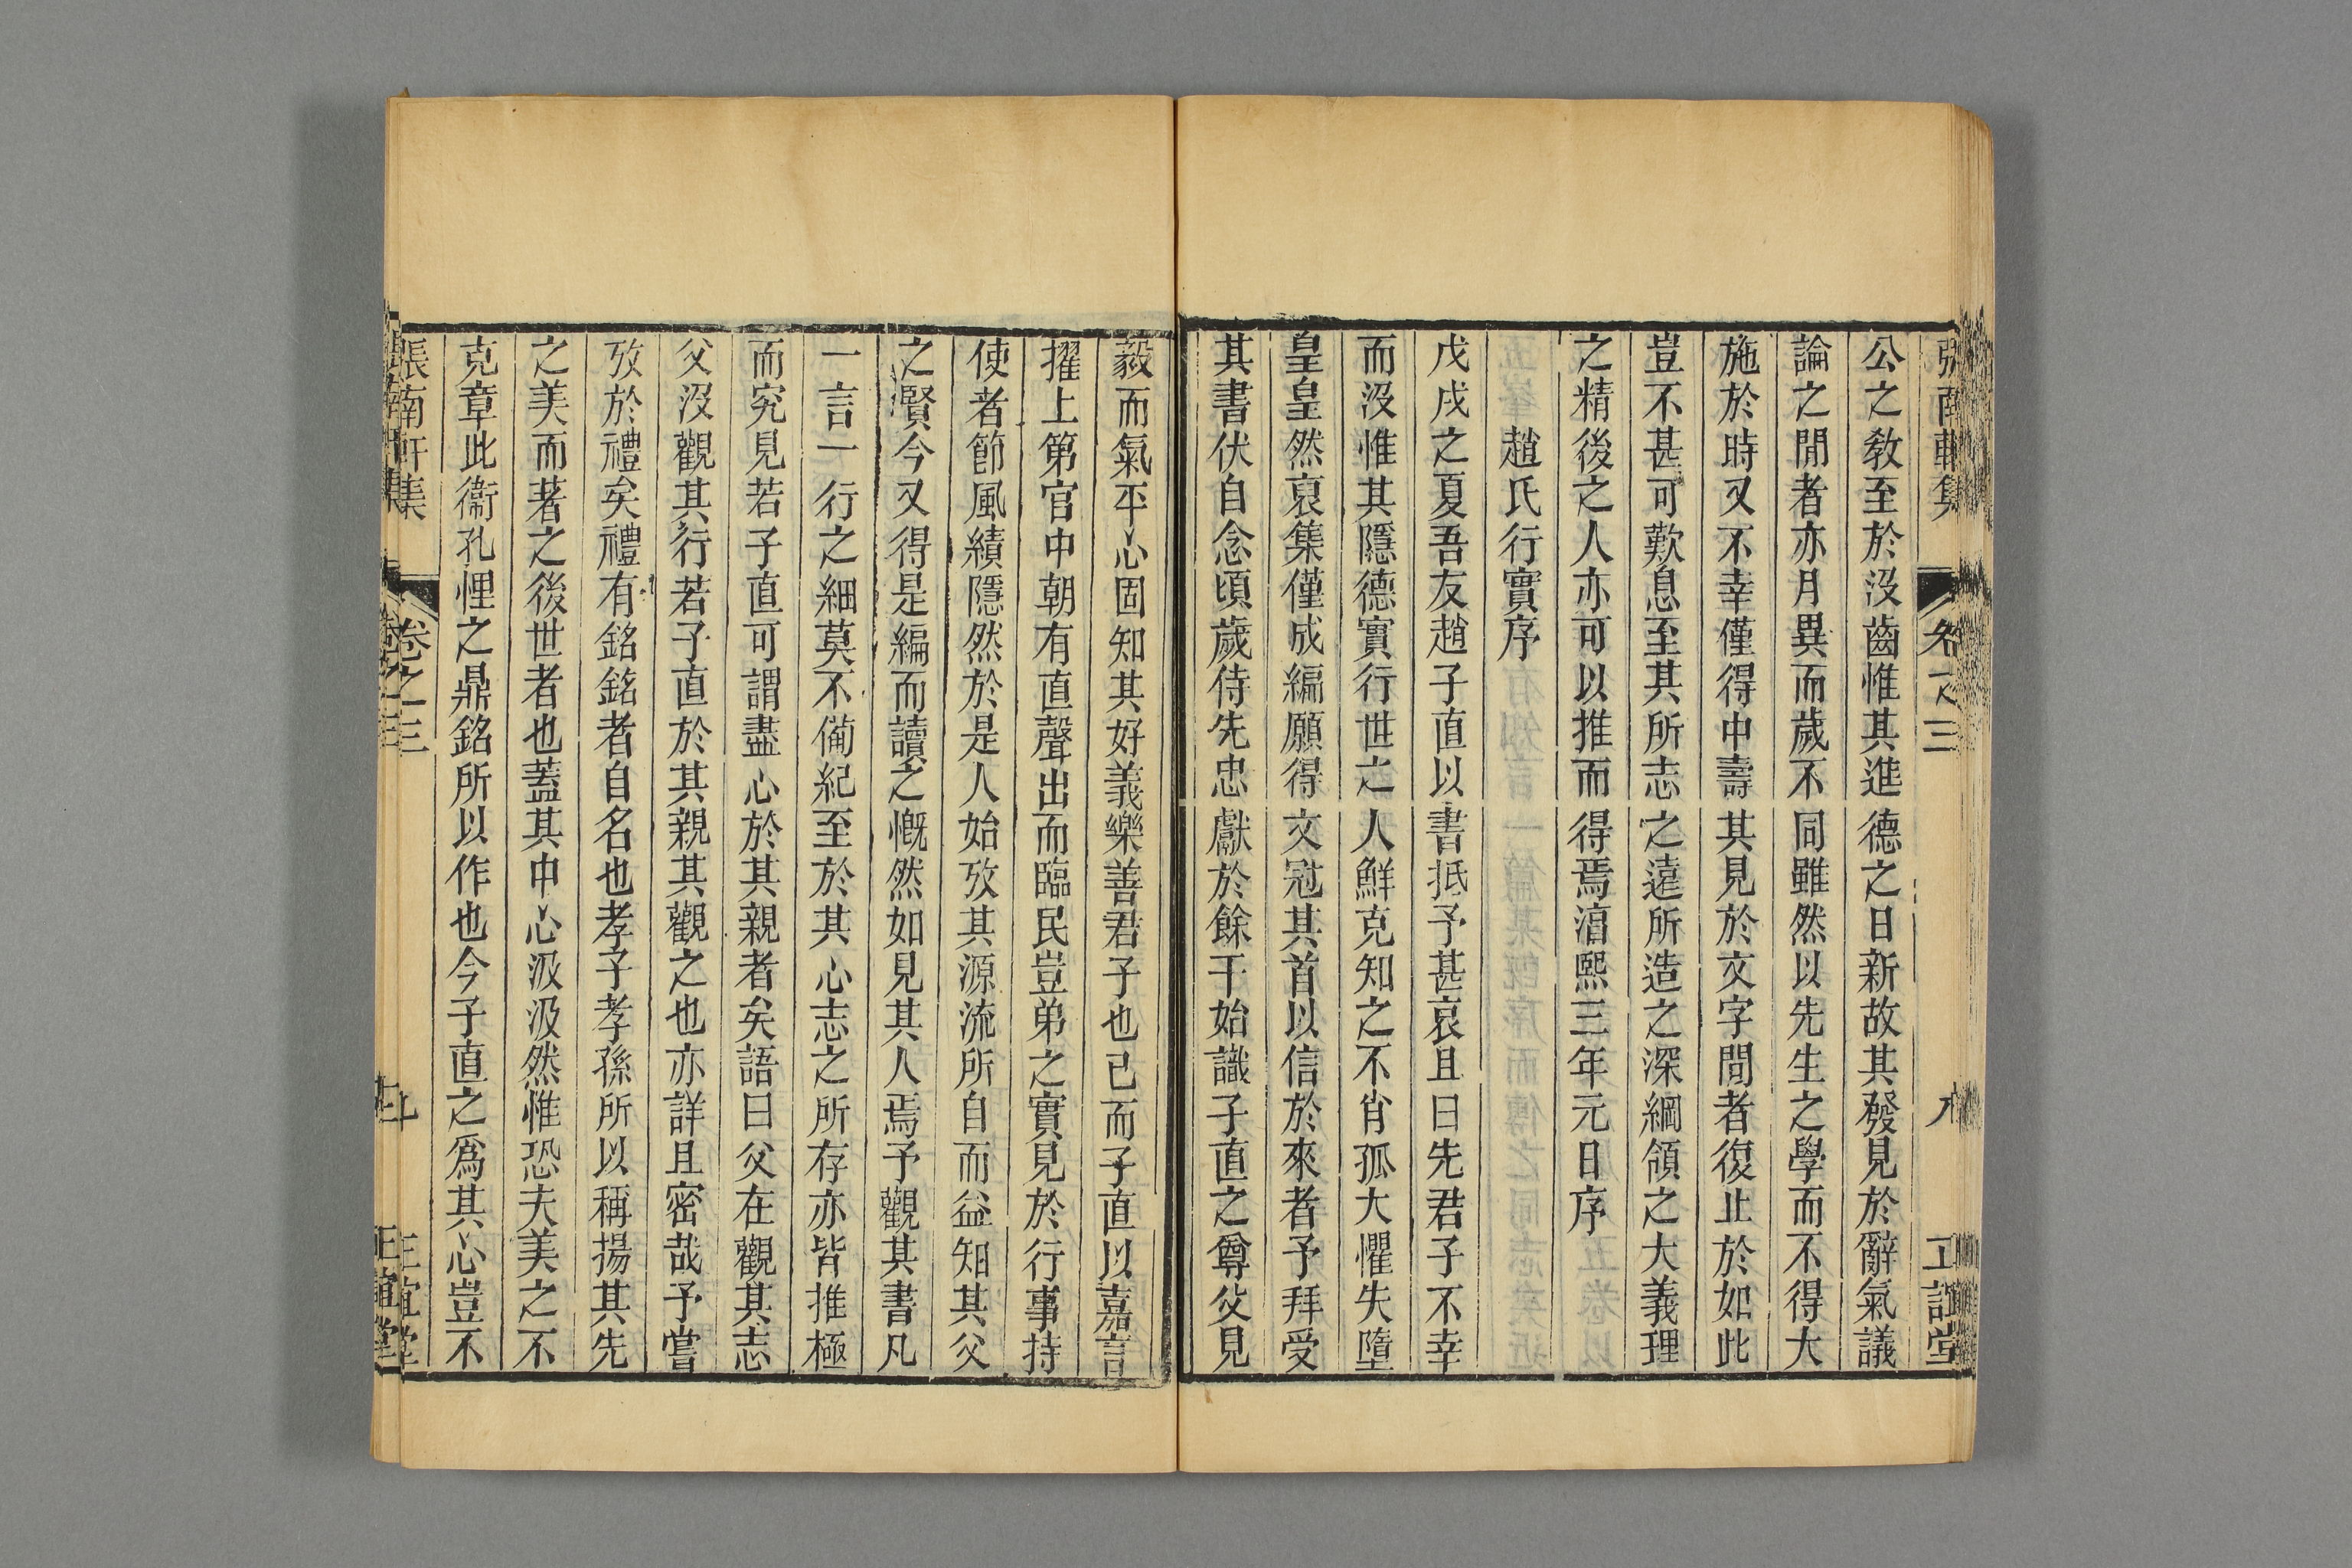 公之敎至於沒齒惟其進德之日新故其發見於辭氣議
論之閒者亦月異而歲不同雖然以先生之學而不得大
施於時又不幸僅得中壽其見於文字間者復止於如此
豈不甚可歎息至其所志之遠所造之深綱領之大義理
之精後之人亦可以推而得焉湻熙三年元日序
趙氏行實序
戊戌之夏吾友趙子直以書抵予甚哀且曰先君子不幸
而沒惟其隱德實行世之人鮮克知之不肖孤大懼失墮
皇皇然裒集僅成編願得文冠其首以信於來者予拜受
其書伏自念頃歲侍先忠獻於餘干始識子直之尊父見
毅而氣平心固知其好義樂善君子也已而子直以嘉言
擢上第官中朝有直聲出而臨民豈弟之實見於行事持
使者節風績隱然於是人始攷其源流所自而益知其父
之賢今又得是編而讀之慨然如見其人焉予觀其書凡
一言一行之細莫不備紀至於其心志之所存亦皆推極
而究見若子直可謂盡心於其親者矣語曰父在觀其志
父沒觀其行若子直於其親其觀之也亦詳且密哉予嘗
攷於禮矣禮有銘銘者自名也孝子孝孫所以稱揚其先
之美而著之後世者也蓋其中心汲汲然惟恐夫美之不
克章此衞孔悝之鼎銘所以作也今子直之爲其心豈不
張南軒集 卷之三 七 正誼堂